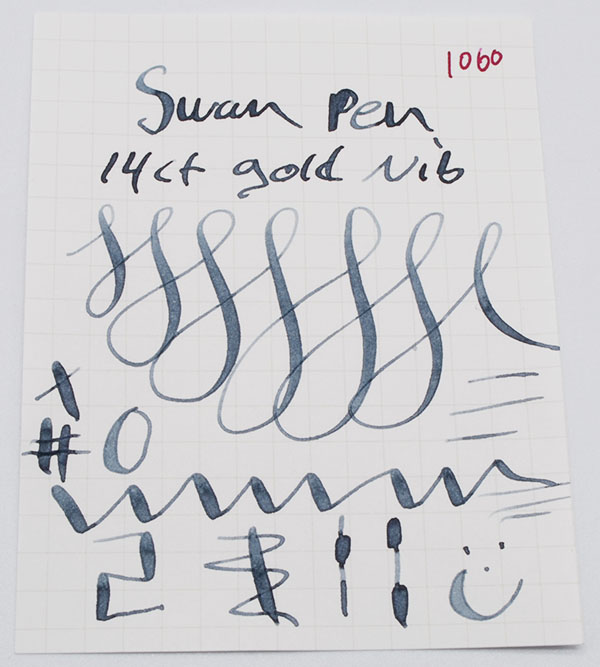 1060
Swan Pen
14ct gold Nib